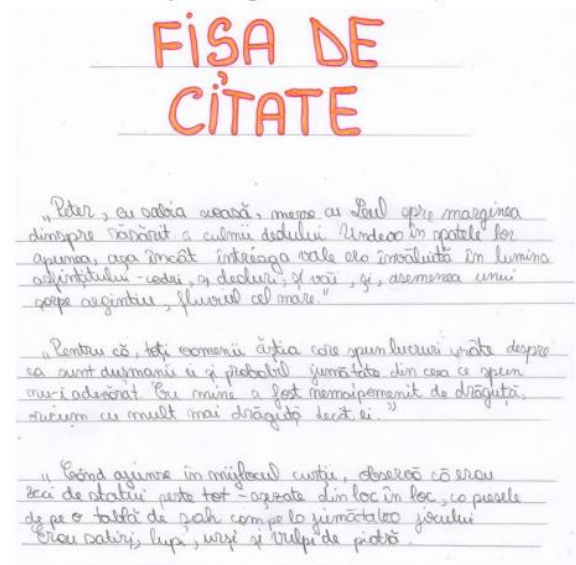 FIŞA DE
CITATE
„Peter, cu sabia scoasă, merse cu Leul spre marginea
dinspre răsărit a culmii dealului. Undeva în spatele lor
apunea, aşa încât întreaga vale era învăluită în lumina
asfinţitului - codri, şi dealuri, şi văi, şi, asemenea unui
şarpe argintiu, fluviul cel mare."
„Pentru că, toţi oamenii ăştia care spun lucruri urâte despre
ea sunt duşmanii ei şi probabil jumătate din ceea ce spun
nu-i adevărat. Cu mine a fost nemaipomenit de drăguţă,
oricum cu mult mai drăguţă decât ei."
„Când ajunse în mijlocul curţii, observă că erau
zeci de statui peste tot - aşezate din loc în loc, ca piesele
de pe o tablă de şah cam pe la jumătatea jocului
Erau satiri, lupi, urşi şi vulpi de piatră.